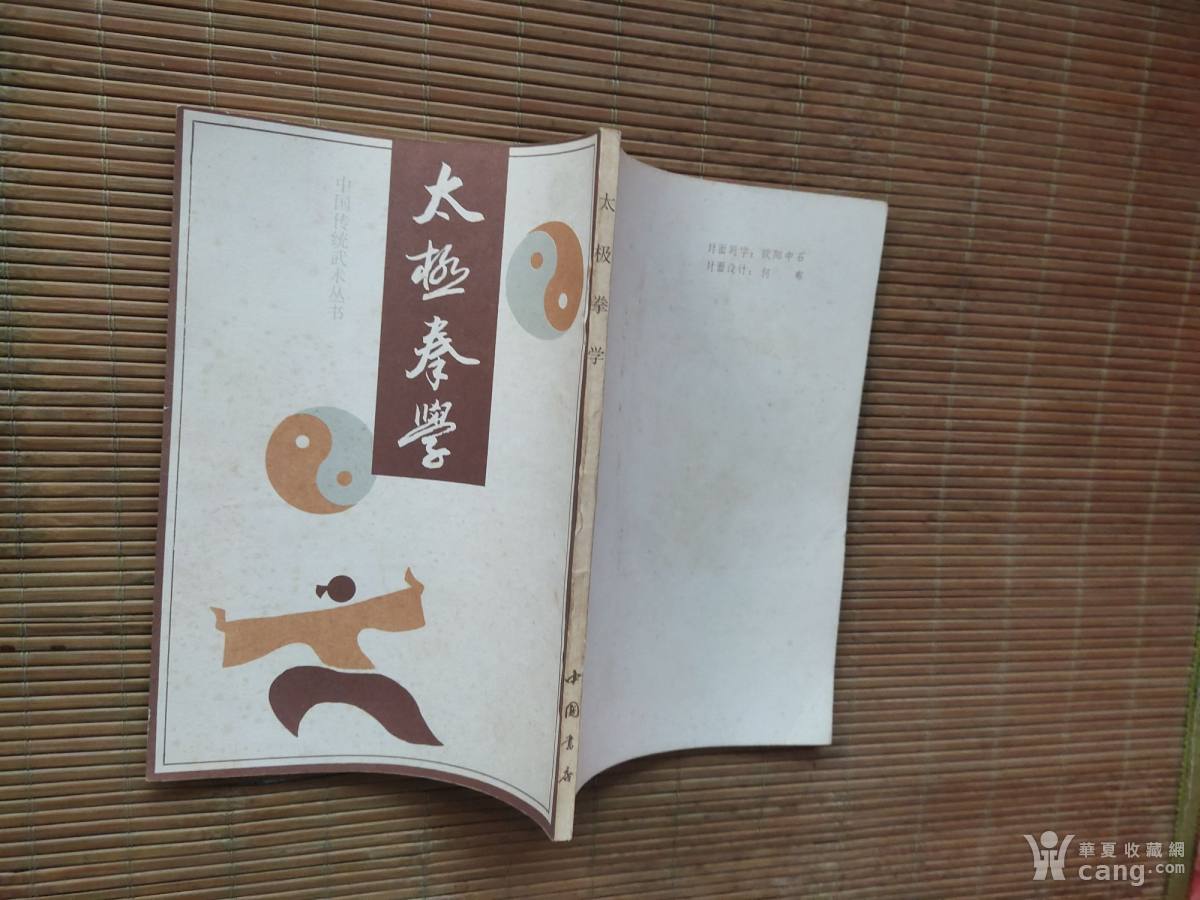 太極拳學
中国传统武术丛书
太极拳学
中国書店
封面题字：欧阳中石
封面设计：何 韦
華夏收藏網
cang.com